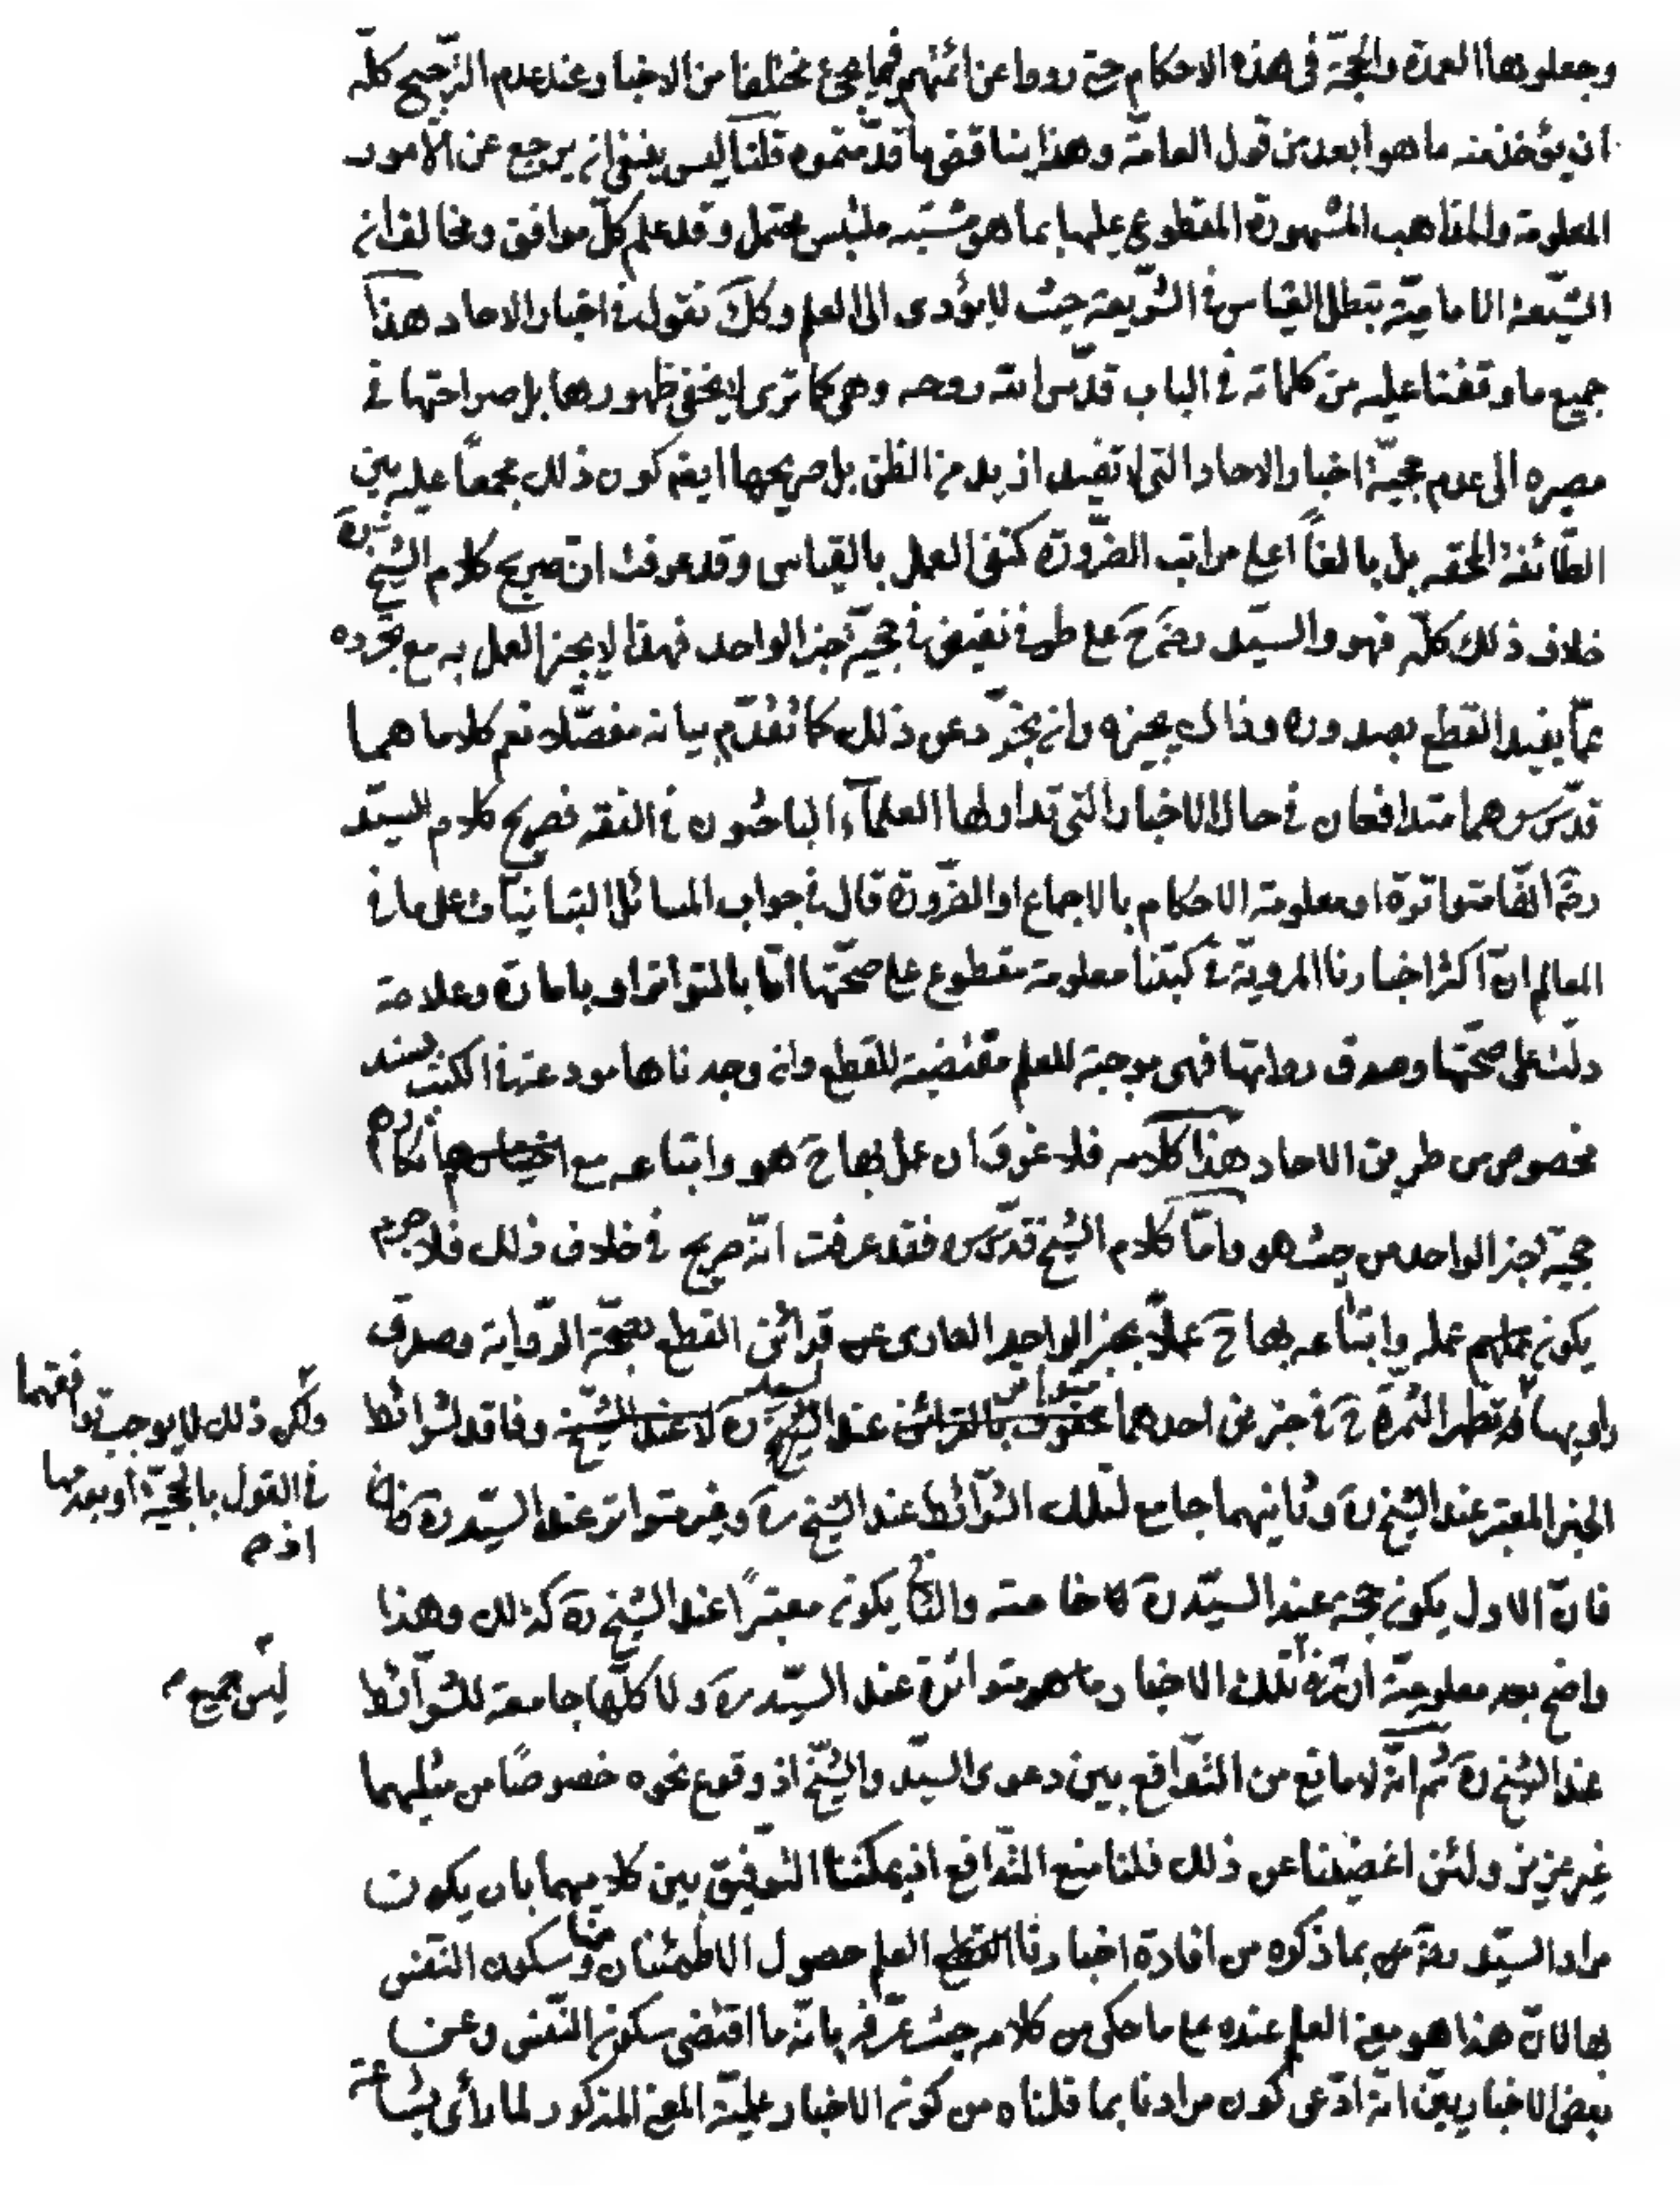 وجعلوها العمدة والحجّة في هذه الاحكام حتى رووا عن ائمتهم فيما يجئ مختلفا من الاخبار وعند عدم الترجيح كلّه
ان يؤخذ منه ما هو ابعد من قول العامّة وهذا يناقض ما قدّمتموه قلنا ليس ينبغي ان يرجع عن الامور
المعلومة والمذاهب المشهورة المقطوع عليها بما هو مشتبه ملتبس محتمل وقد علم كلّ موافق ومخالف ان
الشيعة الاماميّة تبطل القياس في الشّريعة حيث لا يؤدى الى العلم وكك نقول في اخبار الاحاد هذا
جميع ما وقفنا عليه من كلماته في الباب قدّس الله روحه وهي كما ترى لا يخفى ظهورها بل صراحتها في
مصيره الى عدم حجيّة اخبار الاحاد التي لا تفيد ازيد من الظن بل صريحها ايضا كون ذلك مجمعاً عليه بين
الطّائفة المحقه بل بالغاً اعلى مراتب الضّرورة كنفى العمل بالقياس وقد عرفت انّ صريح كلام الشيخ ره
خلاف ذلك كلّه فهو والسيّد رح على طرفى نقيض في حجيّة خبر الواحد فهذا لا يجيز العمل به مع تجرّده
عمّا يفيد القطع بصدوره وذاك يجيزه وان تجرّد عن ذلك كما تقدّم بيانه مفصّلا نعم كلاما هما
قدّس سرهما متدافعان في حال الاخبار التي تداولها العلمآء الباحثون في الفقه فصريح كلام السيّد
ره انّها متواترة او معلومة الاحكام بالاجماع او الضّرورة قال في جواب المسائل التبانيّات على ما في
المعالم انّ اكثر اخبارنا المرويّة في كتبنا معلومة مقطوع على صحّتها امّا بالتواتر او بامارة وعلامة
دلّت على صحّتها وصدق رواتها فهى موجبة للعلم مقتضية للقطع وان وجدناها مودعة في الكتب بسند
مخصوص من طريق الاحاد هذا كلامه فلا غرو ان عمل بها ح هو واتباعه مع انكارهم
حجيّة خبر الواحد من حيث هو وامّا كلام الشيخ قدّس سره فقد عرفت انّه صريح في خلاف ذلك فلا جرم
يكون عملهم عمله واتباعه بها ح عملاً بخبر الواحد العارى عن قرائن القطع بصحّة الرّواية وصدق
راويها وتظهر الثمرة ح في خبرين احدهما محفوف بالقرائن متواتر عند السيد ره لا عند الشيخ وفاقد لشرائط
ولكن ذلك لا يوجب توافقهما
في القول بالحجيّة او بعدمها
اذ م
الخبر المعتبر عند الشيخ ره وثانيهما جامع لتلك الشّرائط عند الشيخ ره وغير متواتر عند السيّد ره
فانّ الاول يكون حجة عند السيّد ره خاصة والثاني يكون معتبراً عند الشيخ ره كذلك وهذا
واضح بعد معلوميّة ان تلك الاخبار متواترة عند السيّد ره ولا كلّها جامعة للشّرائط
ليس جميع م
عند الشيخ ره ثم انّه لا مانع من التّدافع بين دعوى السيّد والشيخ اذ وقوع نحوه خصوصاً من مثلهما
غير عزيز ولئن اغضينا عن ذلك فلنا منع التّدافع اذ يمكننا التّوفيق بين كلاميهما بان يكون
مراد السيّد ره بما ذكره من افادة اخبارنا القطع العلم حصول الاطمئنان منها وسكون النّفس
بها لانّ هذا هو معنى العلم عنده على ما حكى من كلامه حيث عرّفه بانّه ما اقتضى سكون النّفس وعن
بعض الاخباريين انّه ادّعى كون مرادنا بما قلناه من كون الاخبار علميّة المعنى المذكور لما رأى بشاعة